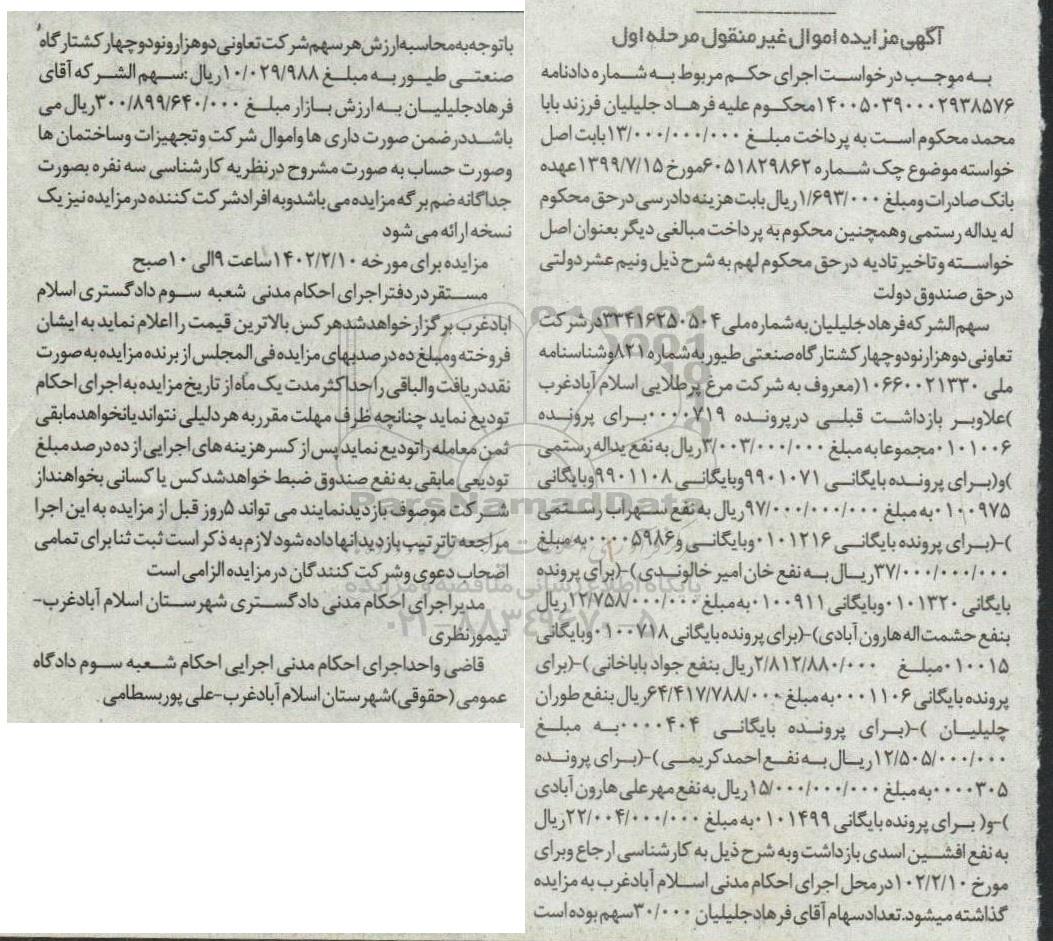 آگهی مزایده اموال غیر منقول مرحله اول
به موجب درخواست اجرای حکم مربوط به شماره دادنامه
۱۴۰۰۵۰۳۹۰۰۰۲۹۳۸۵۷۶محکوم علیه فرهاد جلیلیان فرزند بابا
محمد محکوم است به پرداخت مبلغ ۱۳/۰۰۰/۰۰۰/۰۰۰بابت اصل
خواسته موضوع چک شماره ۶۰۵۱۸۲۹۸۶۲مورخ ۱۳۹۹/۷/۱۵عهده
بانک صادرات ومبلغ ۱/۶۹۳/۰۰۰ریال بابت هزینه دادرسی درحق محکوم
له یداله رستمی وهمچنین محکوم به پرداخت مبالغی دیگر بعنوان اصل
خواسته وتاخیرتادیه درحق محکوم لهم به شرح ذیل ونیم عشر دولتی
درحق صندوق دولت
سهم الشرکه فرهاد جلیلیان به شماره ملی ۳۳۴۱۶۲۵۰۵۰۴درشرکت
تعاونی دوهزارنودوچهار کشتارگاه صنعتی طیور به شماره ۸۲۱وشناسنامه
ملی ۱۰۶۶۰۰۲۱۳۳۰(معروف به شرکت مرغ پرطلایی اسلام آبادغرب
)علاوبر بازداشت قبلی درپرونده ۰۰۰۰۷۱۹برای پرونده
۰۱۰۱۰۰۶مجموعا به مبلغ ۳/۰۰۳/۰۰۰/۰۰۰ریال به نفع یداله رستمی
)و(برای پرونده بایگانی ۹۹۰۱۰۷۱وبایگانی ۹۹۰۱۱۰۸وبایگانی
۰۱۰۰۹۷۵به مبلغ ۹۷/۰۰۰/۰۰۰/۰۰۰ریال به نفع سهراب رستمی
)-(برای پرونده بایگانی ۰۱۰۱۲۱۶وبایگانی و۰۰۰۰۵۹۸۶به مبلغ
۳۷/۰۰۰/۰۰۰/۰۰۰ریال به نفع خان امیر خالوندی)-(برای پرونده
بایگانی ۰۱۰۱۳۲۰وبایگانی ۰۱۰۰۹۱۱به مبلغ ۱۲/۷۵۸/۰۰۰/۰۰۰ریال
بنفع حشمت اله هارون آبادی)-(برای پرونده بایگانی ۰۱۰۰۷۱۸وبایگانی
۰۱۰۰۱۵مبلغ ۲/۸۱۲/۸۸۰/۰۰۰ریال بنفع جواد باباخانی)-(برای
پرونده بایگانی ۰۰۰۱۱۰۶به مبلغ ۶۴/۴۱۷/۷۸۸/۰۰۰ریال بنفع طوران
چلیلیان )-(برای پرونده بایگانی ۰۰۰۰۴۰۴به مبلغ
۱۲/۵۰۵/۰۰۰/۰۰۰ریال به نفع احمد کریمی)-(برای پرونده
۰۰۰۰۳۰۵به مبلغ ۱۵/۰۰۰/۰۰۰/۰۰۰ریال به نفع مهرعلی هارون آبادی
)-و( برای پرونده بایگانی ۰۱۰۱۴۹۹به مبلغ ۲۲/۰۰۴/۰۰۰/۰۰۰ریال
به نفع افشین اسدی بازداشت وبه شرح ذیل به کارشناسی ارجاع وبرای
مورخ ۱۰۲/۲/۱۰درمحل اجرای احکام مدنی اسلام آبادغرب به مزایده
گذاشته میشود.تعدادسهام آقای فرهادجلیلیان ۳۰/۰۰۰سهم بوده است
باتوجه به محاسبه ارزش هر سهم شرکت تعاونی دوهزارونودوچهار کشتارگاه
صنعتی طیور به مبلغ ۱۰/۰۲۹/۹۸۸ریال :سهم الشرکه آقای
فرهادجلیلیان به ارزش بازار مبلغ ۳۰۰/۸۹۹/۶۴۰/۰۰۰ریال می
باشددرضمن صورت داری ها واموال شرکت وتجهیزات وساختمان ها
وصورت حساب به صورت مشروح درنظریه کارشناسی سه نفره بصورت
جداگانه ضم برگه مزایده می باشدوبه افرادشرکت کننده درمزایده نیزیک
نسخه ارائه می شود
مزایده برای مورخه ۱۴۰۲/۲/۱۰ساعت ۹الی ۱۰صبح
مستقردردفتراجرای احکام مدنی شعبه سوم دادگستری اسلام
ابادغرب برگزارخواهدشدهرکس بالاترین قیمت را اعلام نماید به ایشان
فروخته ومبلغ ده درصدبهای مزایده فی المجلس از برنده مزایده به صورت
نقددریافت والباقی را حداکثر مدت یک ماه از تاریخ مزایده به اجرای احکام
تودیع نماید چنانچه ظرف مهلت مقرربه هردلیلی نتواندیانخواهدمابقی
ثمن معامله راتودیع نماید پس از کسر هزینه های اجرایی از ده درصد مبلغ
تودیعی مابقی به نفع صندوق ضبط خواهدشدکس یا کسانی بخواهنداز
شرکت موصوف بازدیدنمایند می تواند ۵روز قبل از مزایده به این اجرا
مراجعه تاترتیب بازدیدانهاداده شود لازم به ذکر است ثبت ثنا برای تمامی
اضحاب دعوی وشرکت کنندگان درمزایده الزامی است
مدیراجرای احکام مدنی دادگستری شهرستان اسلام آبادغرب-
تیمورنظری
قاضی واحداجرای احکام مدنی اجرایی احکام شعبه سوم دادگاه
عمومی(حقوقی)شهرستان اسلام آبادغرب-علی پوربسطامی
ParsNamadData
پایگاه اطلاع رسانی مناقصه و مزایده
۰۲۱-۸۸۳۴۹۶۷۰-۵